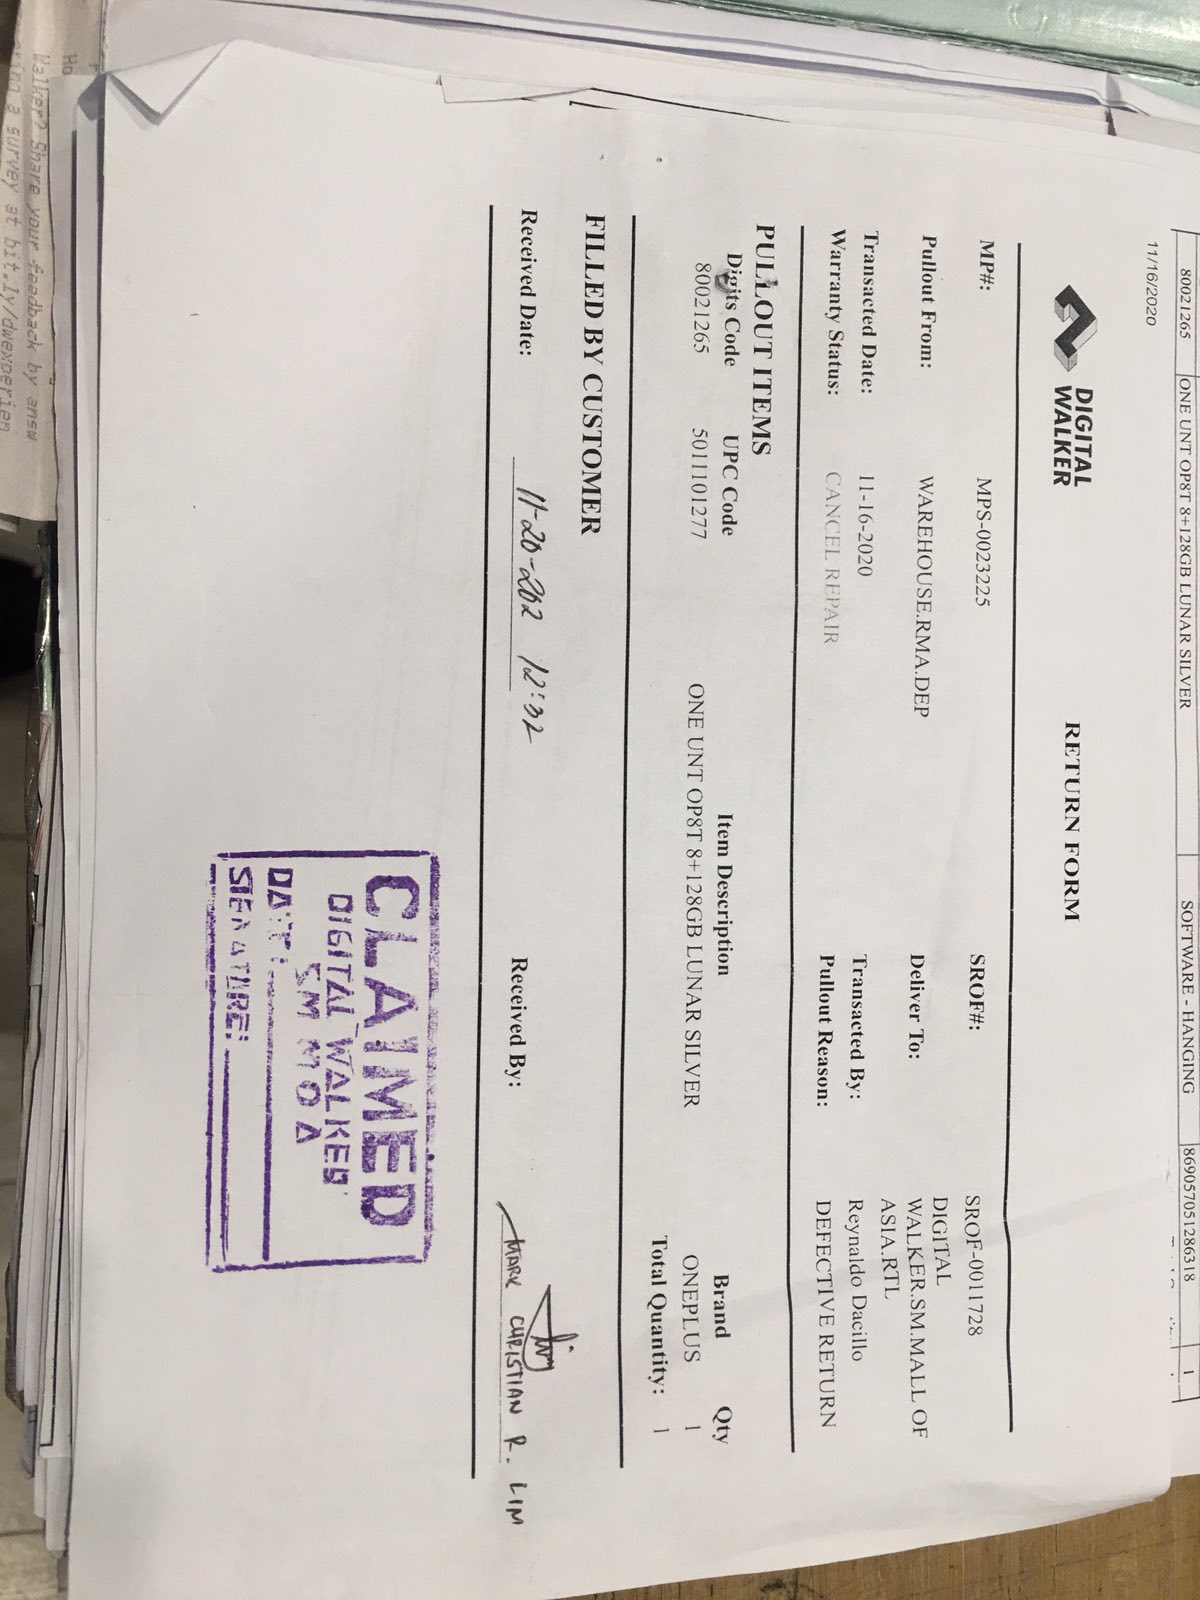 80021265 ONE UNT OP8T 8+128GB LUNAR SILVER SOFTWARE - HANGING 869057051286318 1
11/16/2020
DIGITAL
WALKER
RETURN FORM
MP#: MPS-0023225 SROF#: SROF-0011728
Pullout From: WAREHOUSE.RMA.DEP Deliver To: DIGITAL
WALKER.SM.MALL OF
ASIA.RTL
Transacted Date: 11-16-2020 Transacted By: Reynaldo Dacillo
Warranty Status: CANCEL REPAIR Pullout Reason: DEFECTIVE RETURN
PULLOUT ITEMS
Digits Code UPC Code Item Description Brand Qty
80021265 5011101277 ONE UNT OP8T 8+128GB LUNAR SILVER ONEPLUS 1
Total Quantity: 1
FILLED BY CUSTOMER
Received Date: 11-20-202 12:32 Received By: MARK CHRISTIAN R. LIM
CLAIMED
DIGITAL WALKER
SM MOA
DATE:
SIGNATURE:
Walker? Share your feedback by answ
a survey at bit.ly/dwexperien